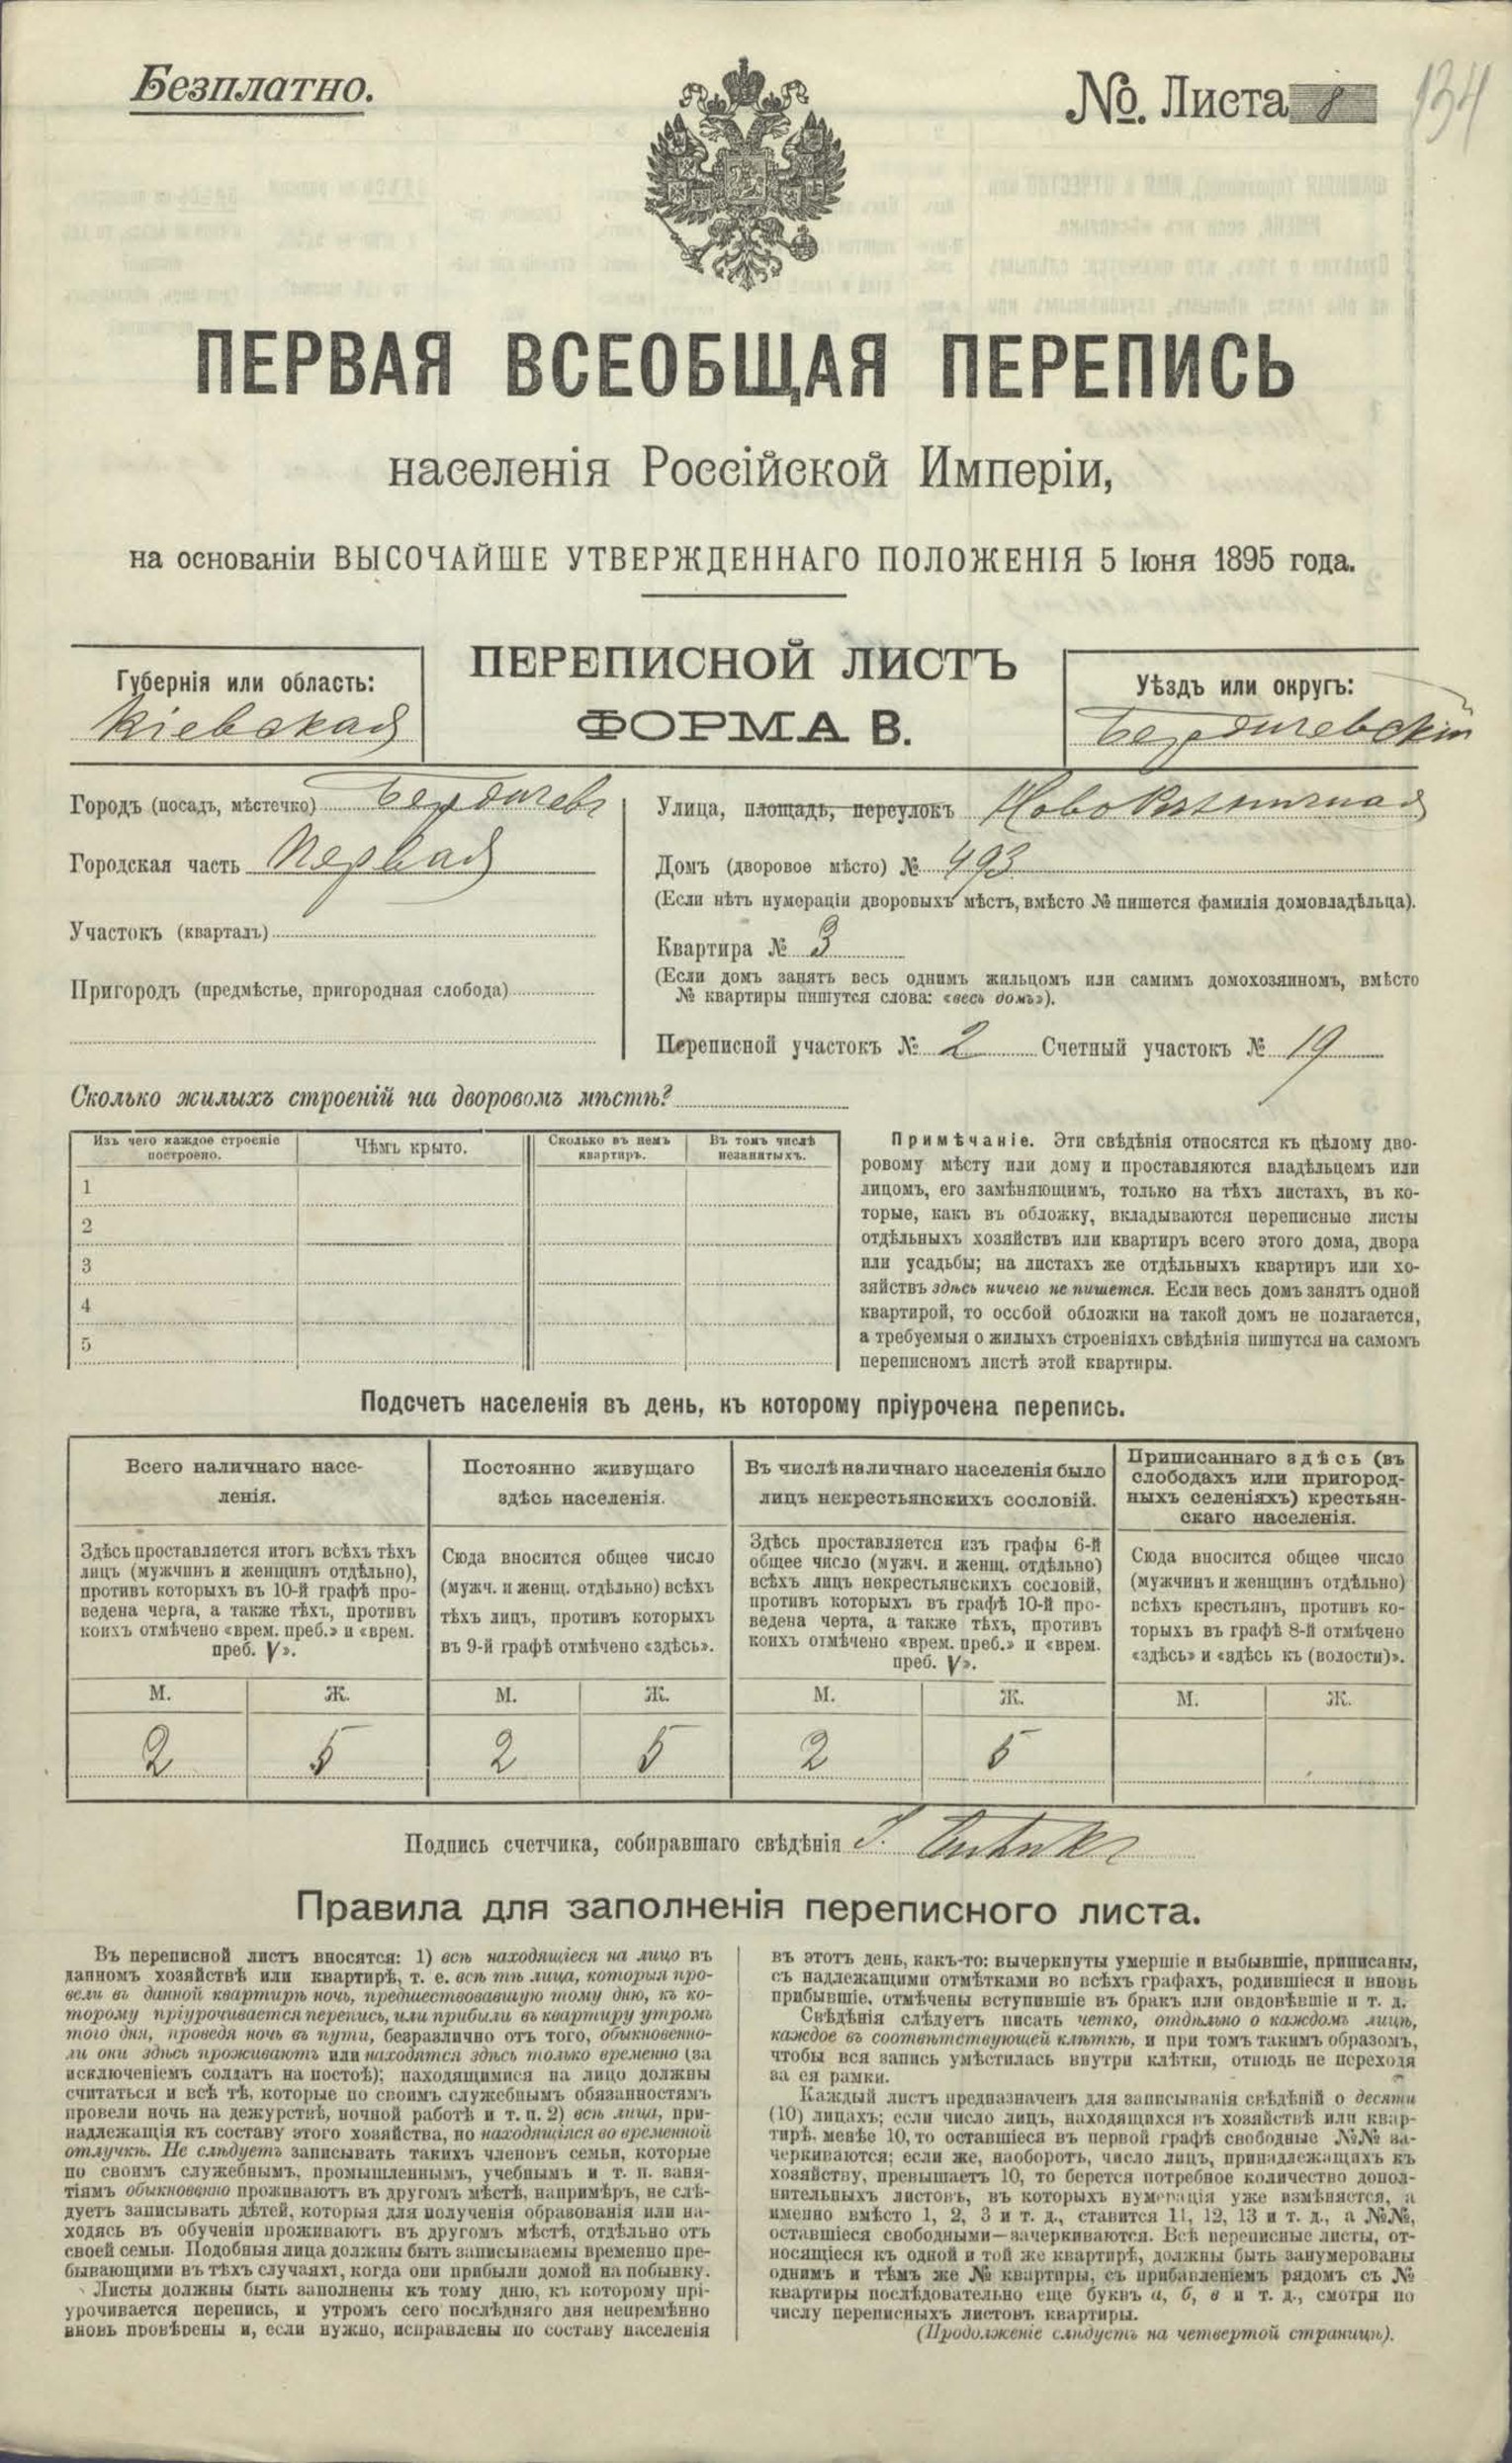 Безплатно.
№. Листа 8
134
ПЕРВАЯ ВСЕОБЩАЯ ПЕРЕПИСЬ
населенія Россійской Имперіи,
на основаніи ВЫСОЧАЙШЕ УТВЕРЖДЕННАГО ПОЛОЖЕНІЯ 5 Іюня 1895 года.
ПЕРЕПИСНОЙ ЛИСТЪ
ФОРМА В.
Губернія или область:
Кіевская
Уѣздъ или округъ:
Бердичевскій
Городъ (посадъ, мѣстечко) Бердичевъ
Городская часть Первая
Участокъ (кварталъ)
Пригородъ (предмѣстье, пригородная слобода)
Улица, площадь, переулокъ
Домъ (дворовое мѣсто) № 493
(Если нѣтъ нумераціи дворовыхъ мѣстъ, вмѣсто № пишется фамилія домовладѣльца).
Квартира № 3
(Если домъ занятъ весь однимъ жильцомъ или самимъ домохозяиномъ, вмѣсто
№ квартиры пишутся слова: «весь домъ»).
Переписной участокъ № 2 Счетный участокъ № 19
Сколько жилыхъ строеній на дворовомъ мѣстѣ?
Изъ чего каждое строеніе
построено.
Чѣмъ крыто.
Сколько въ немъ
квартиръ.
Въ томъ числѣ
незанятыхъ.
1
2
3
4
5
Примѣчаніе. Эти свѣдѣнія относятся къ цѣлому дво-
ровому мѣсту или дому и проставляются владѣльцемъ или
лицомъ, его замѣняющимъ, только на тѣхъ листахъ, въ ко-
торые, какъ въ обложку, вкладываются переписные листы
отдѣльныхъ хозяйствъ или квартиръ всего этого дома, двора
или усадьбы; на листахъ же отдѣльныхъ квартиръ или хо-
зяйствъ здѣсь ничего не пишется. Если весь домъ занятъ одной
квартирой, то особой обложки на такой домъ не полагается,
а требуемыя о жилыхъ строеніяхъ свѣдѣнія пишутся на самомъ
переписномъ листѣ этой квартиры.
Подсчетъ населенія въ день, къ которому пріурочена перепись.
Всего наличнаго насе-
ленія.
Здѣсь проставляется итогъ всѣхъ тѣхъ
лицъ (мужчинъ и женщинъ отдѣльно),
противъ которыхъ въ 10-й графѣ про-
ведена черта, а также тѣхъ, противъ
коихъ отмѣчено «врем. преб.» и «врем.
преб. V».
Постоянно живущаго
здѣсь населенія.
Сюда вносится общее число
(мужч. и женщ. отдѣльно) всѣхъ
тѣхъ лицъ, противъ которыхъ
въ 9-й графѣ отмѣчено «здѣсь».
Въ числѣ наличнаго населенія было
лицъ некрестьянскихъ сословій.
Здѣсь проставляется изъ графы 6-й
общее число (мужч. и женщ. отдѣльно)
всѣхъ лицъ некрестьянскихъ сословій,
противъ которыхъ въ графѣ 10-й про-
ведена черта, а также тѣхъ, противъ
коихъ отмѣчено «врем. преб.» и «врем.
преб. V».
Приписаннаго здѣсь (въ
слободахъ или пригород-
ныхъ селеніяхъ) крестьян-
скаго населенія.
Сюда вносится общее число
(мужчинъ и женщинъ отдѣльно)
всѣхъ крестьянъ, противъ ко-
торыхъ въ графѣ 8-й отмѣчено
«здѣсь» и «здѣсь къ (волости)».
М. Ж. М. Ж. М. Ж. М. Ж.
2 5 2 5 2 5
Подпись счетчика, собиравшаго свѣдѣнія
Правила для заполненія переписного листа.
Въ переписной листъ вносятся: 1) всѣ находящіеся на лицо въ
данномъ хозяйствѣ или квартирѣ, т. е. всѣ тѣ лица, которыя про-
вели въ данной квартирѣ ночь, предшествовавшую тому дню, къ ко-
торому пріурочивается перепись, или прибыли въ квартиру утромъ
того дня, проведя ночь въ пути, безразлично отъ того, обыкновенно-
ли они здѣсь проживаютъ или находятся здѣсь только временно (за
исключеніемъ солдатъ на постоѣ); находящимися на лицо должны
считаться и всѣ тѣ, которые по своимъ служебнымъ обязанностямъ
провели ночь на дежурствѣ, ночной работѣ и т. п. 2) всѣ лица, при-
надлежащія къ составу этого хозяйства, но находящіяся во временной
отлучкѣ. Не слѣдуетъ записывать такихъ членовъ семьи, которые
по своимъ служебнымъ, промышленнымъ, учебнымъ и т. п. заня-
тіямъ обыкновенно проживаютъ въ другомъ мѣстѣ, напримѣръ, не слѣ-
дуетъ записывать дѣтей, которыя для полученія образованія или на-
ходясь въ обученіи проживаютъ въ другомъ мѣстѣ, отдѣльно отъ
своей семьи. Подобныя лица должны быть записываемы временно пре-
бывающими въ тѣхъ случаяхъ, когда они прибыли домой на побывку.
Листы должны быть заполнены къ тому дню, къ которому прі-
урочивается перепись, и утромъ сего послѣдняго дня непремѣнно
вновь провѣрены и, если нужно, исправлены по составу населенія
въ этотъ день, какъ-то: вычеркнуты умершіе и выбывшіе, приписаны,
съ надлежащими отмѣтками во всѣхъ графахъ, родившіеся и вновь
прибывшіе, отмѣчены вступившіе въ бракъ или овдовѣвшіе и т. д.
Свѣдѣнія слѣдуетъ писать четко, отдѣльно о каждомъ лицѣ,
каждое въ соотвѣтствующей клѣткѣ, и при томъ такимъ образомъ,
чтобы вся запись умѣстилась внутри клѣтки, отнюдь не переходя
за ея рамки.
Каждый листъ предназначенъ для записыванія свѣдѣній о десяти
(10) лицахъ; если число лицъ, находящихся въ хозяйствѣ или квар-
тирѣ, менѣе 10, то оставшіеся въ первой графѣ свободные №№ за-
черкиваются; если же, наоборотъ, число лицъ, принадлежащихъ къ
хозяйству, превышаетъ 10, то берется потребное количество допол-
нительныхъ листовъ, въ которыхъ нумерація уже измѣняется, а
именно вмѣсто 1, 2, 3 и т. д., ставится 11, 12, 13 и т. д., а №№,
оставшіеся свободными—зачеркиваются. Всѣ переписные листы, от-
носящіеся къ одной и той же квартирѣ, должны быть занумерованы
однимъ и тѣмъ же № квартиры, съ прибавленіемъ рядомъ съ №
квартиры послѣдовательно еще буквъ а, б, в и т. д., смотря по
числу переписныхъ листовъ квартиры.
(Продолженіе слѣдуетъ на четвертой страницѣ).